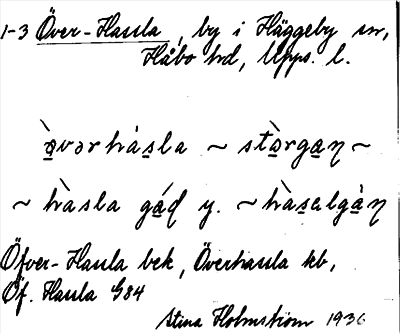 1-3 Över-Hassla, by i Häggeby sn,
Håbo hd, Upps. l.
òvərhásla ~ stòrgaɳ ~
~ hàsla gáɖ y. ~ hàsalgàɳ
Öfver-Hassla bek, Överhassla kb,
Öf. Hassla G84
Stina Holmström 1936